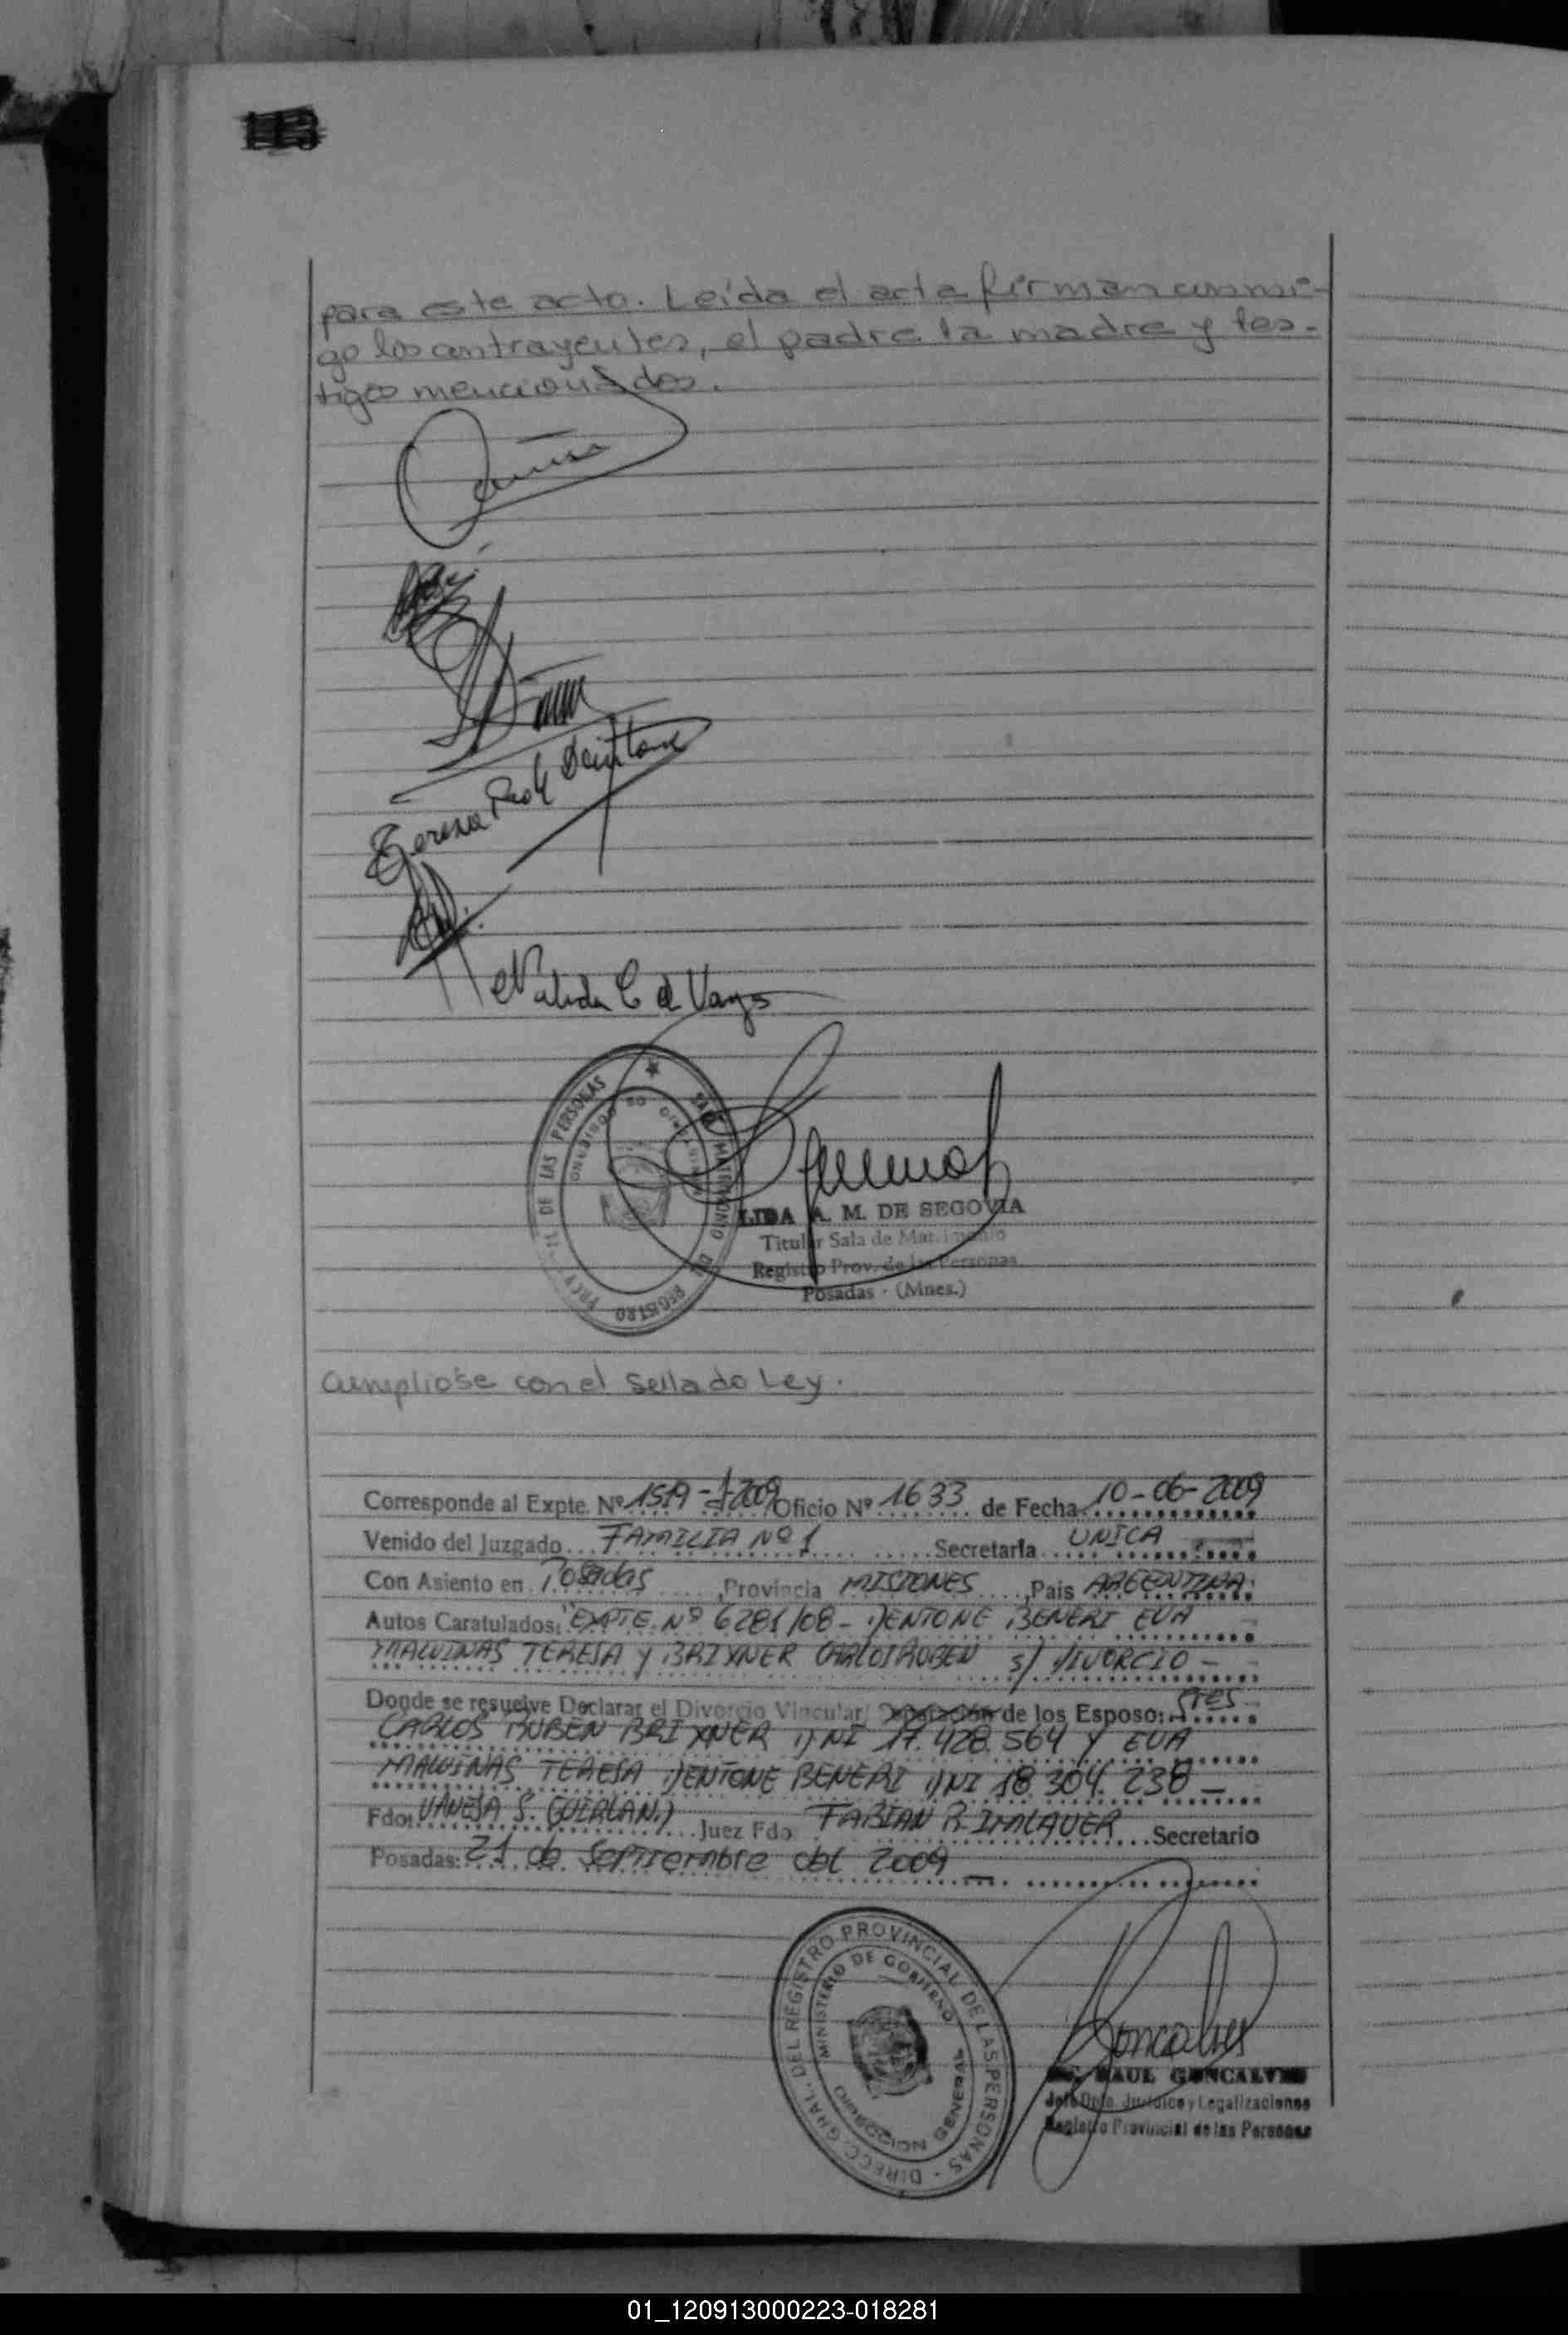 113
para este acto. Leída el acta firman conmi-
go los contrayentes, el padre la madre y tes-
tigos mencionados.
Teresa
LIDA A. M. DE SEGOVIA
Titular Sala de Matrimonio
Registro Prov. de las Personas
Posadas - (Mnes.)
SALA MATRIMONIO DEL REGISTRO PROV. DE LAS PERSONAS
MINISTERIO DE GOBIERNO
Cumpliose con el Sellado Ley.
Corresponde al Expte. Nº Oficio Nº 1633 de Fecha 10-06-2009
Venido del Juzgado FAMILIA Nº 1 Secretaría UNICA
Con Asiento en Posadas, Provincia MISIONES, País ARGENTINA.
Autos Caratulados: "EXPTE. Nº 6281/08 - DENTONE BENERI EVA
MALVINAS TERESA Y BRIXNER CARLOS RUBEN S/ DIVORCIO -
Donde se resuelve Declarar el Divorcio Vincular/ Separación de los Esposo: Stes
CARLOS RUBEN BRIXNER DNI 17.428.564 Y EVA
MALVINAS TERESA DENTONE BENERI DNI 18.304.238 -
Fdo: VANESA S. Juez Fdo FABIAN R. Secretario
Posadas: 21 de Septiembre del 2009 -
DIRECC. GRAL. DEL REGISTRO PROVINCIAL DE LAS PERSONAS
MINISTERIO DE GOBIERNO
DIRECCION GENERAL
RAUL GONCALVES
Jefe Dpto. Jurídico y Legalizaciones
Registro Provincial de las Personas
01_120913000223-018281